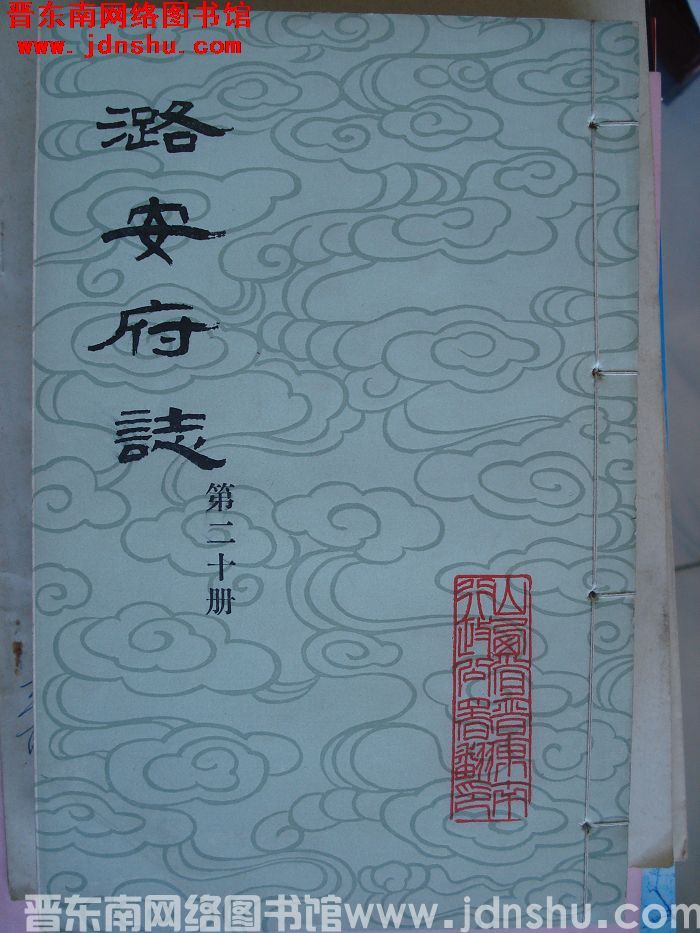 晋东南网络图书馆
www.jdnshu.com
潞安府誌
第二十册
山西省晋东南
行政公署翻印
晋东南网络图书馆www.jdnshu.com